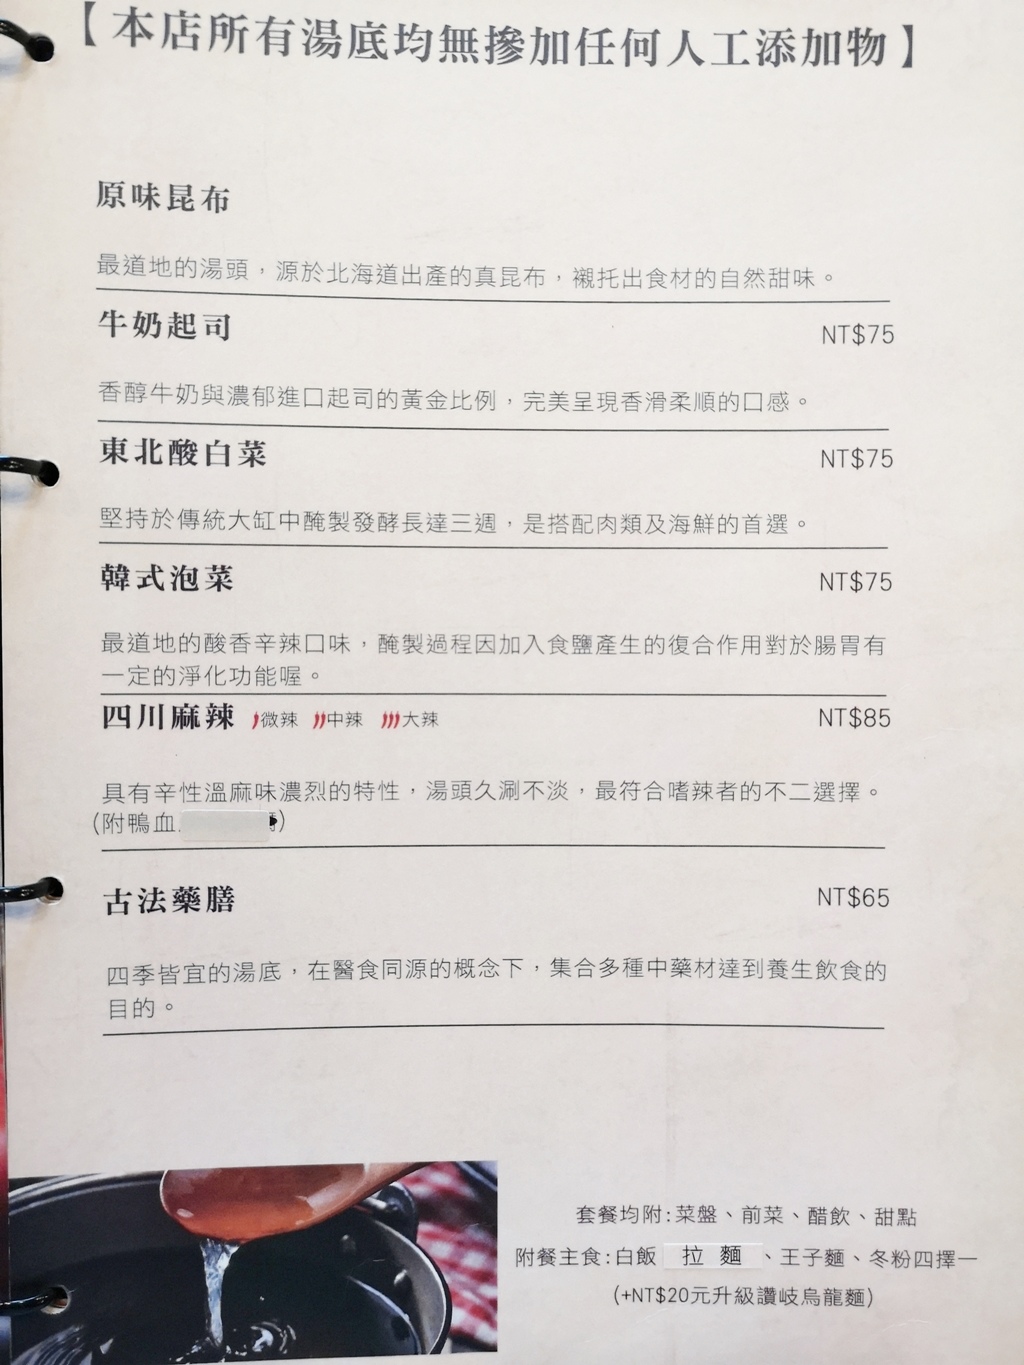 【本店所有湯底均無摻加任何人工添加物】
原味昆布
最道地的湯頭，源於北海道出產的真昆布，襯托出食材的自然甜味。
牛奶起司 NT$75
香醇牛奶與濃郁進口起司的黃金比例，完美呈現香滑柔順的口感。
東北酸白菜 NT$75
堅持於傳統大缸中醃製發酵長達三週，是搭配肉類及海鮮的首選。
韓式泡菜 NT$75
最道地的酸香辛辣口味，醃製過程因加入食鹽產生的復合作用對於腸胃有
一定的淨化功能喔。
四川麻辣 微辣 中辣 大辣 NT$85
具有辛性溫麻味濃烈的特性，湯頭久涮不淡，最符合嗜辣者的不二選擇。
(附鴨血 )
古法藥膳 NT$65
四季皆宜的湯底，在醫食同源的概念下，集合多種中藥材達到養生飲食的
目的。
套餐均附:菜盤、前菜、醋飲、甜點
附餐主食:白飯 拉麵、王子麵、冬粉四擇一
(+NT$20元升級讚岐烏龍麵)